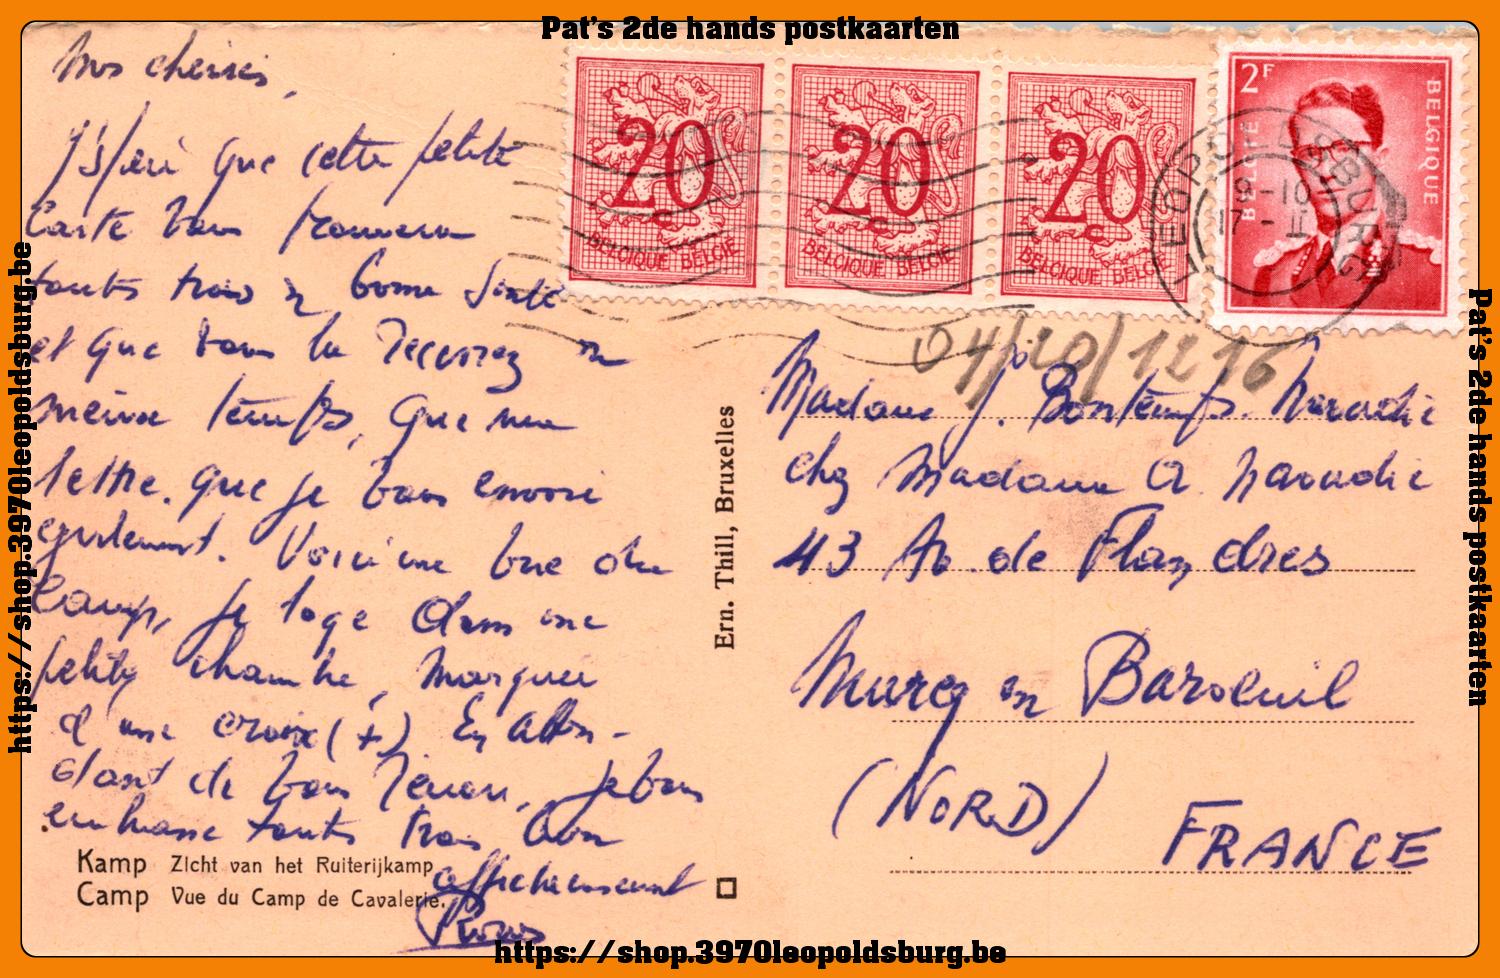 Pat's 2de hands postkaarten
Mes cheries,
J'espère que cette petite
carte vous trouvera
toutes trois en bonne santé
et que vous la recevrez en
même temps, que ma
lettre. que je vous envoie
également. Voici une vue du
Camp, je loge dans une
petite chambre, marquée
d'une croix (+) En atten-
dant de vous revoir, je vous
embrasse toutes trois bien
affectueusement
Kamp Zicht van het Ruiterijkamp
Camp Vue du Camp de Cavalerie.
Ern. Thill, Bruxelles
20
BELGIQUE BELGIE
20
BELGIQUE BELGIE
20
BELGIQUE BELGIE
2F
BELGIË
BELGIQUE
LEOPOLDSBURG
9-10
17 - II
04/20/12 16
Madame J. Bontemps.
chez Madame A.
43 Av. de Flandres
Marcq en Baroeuil
(NORD)
FRANCE
https://shop.3970leopoldsburg.be
Pat's 2de hands postkaarten
https://shop.3970leopoldsburg.be